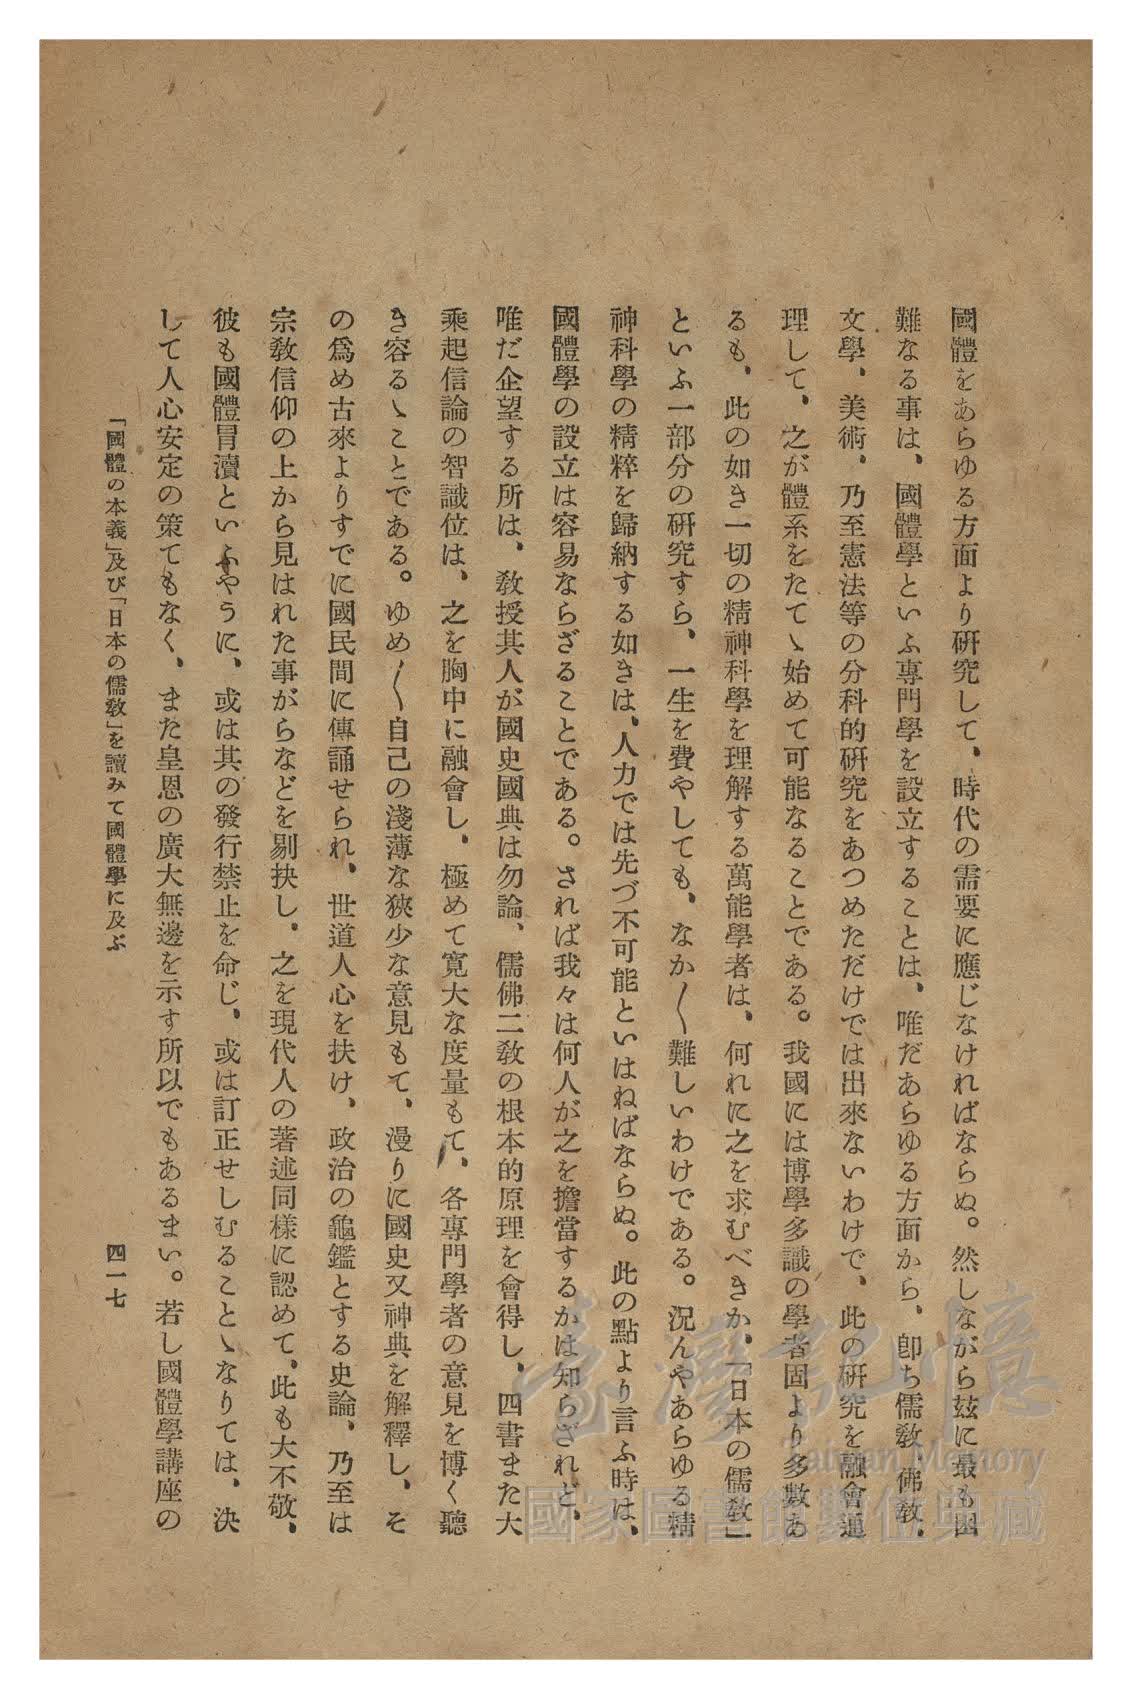 國體をあらゆる方面より硏究して、時代の需要に應じなければならぬ。然しながら玆に最も困
難なる事は、國體學といふ專門學を設立することは、唯だあらゆる方面から、卽ち儒敎、佛敎、
文學、美術、乃至憲法等の分科的硏究をあつめただけでは出來ないわけで、此の硏究を融會運
理して、之が體系をたてゝ始めて可能なることである。我國には博學多識の學者固より多數あ
るも、此の如き一切の精神科學を理解する萬能學者は、何れに之を求むべきか、「日本の儒敎」
といふ一部分の硏究すら、一生を費やしても、なか〱難しいわけである。況んやあらゆる精
神科學の精粹を歸納する如きは、人力では先づ不可能といはねばならぬ。此の點より言ふ時は、
國體學の設立は容易ならざることである。されば我々は何人が之を擔當するかは知らざれど、
唯だ企望する所は、敎授其人が國史國典は勿論、儒佛二敎の根本的原理を會得し、四書また大
乘起信論の智識位は、之を胸中に融會し、極めて寬大な度量もて、各專門學者の意見を博く聽
き容るゝことである。ゆめ〱自己の淺薄な狹少な意見もて、漫りに國史又神典を解釋し、そ
の爲め古來よりすでに國民間に傳誦せられ、世道人心を扶け、政治の龜鑑とする史論、乃至は
宗敎信仰の上から見はれた事がらなどを剔抉し、之を現代人の著述同樣に認めて、此も大不敬、
彼も國體冒瀆といふやうに、或は其の發行禁止を命じ、或は訂正せしむることゝなりては、決
して人心安定の策てもなく、また皇恩の廣大無邊を示す所以でもあるまい。若し國體學講座の
「國體の本義」及び「日本の儒敎」を讀みて國體學に及ぶ
四一七
臺灣記憶
Taiwan Memory
國家圖書館數位典藏